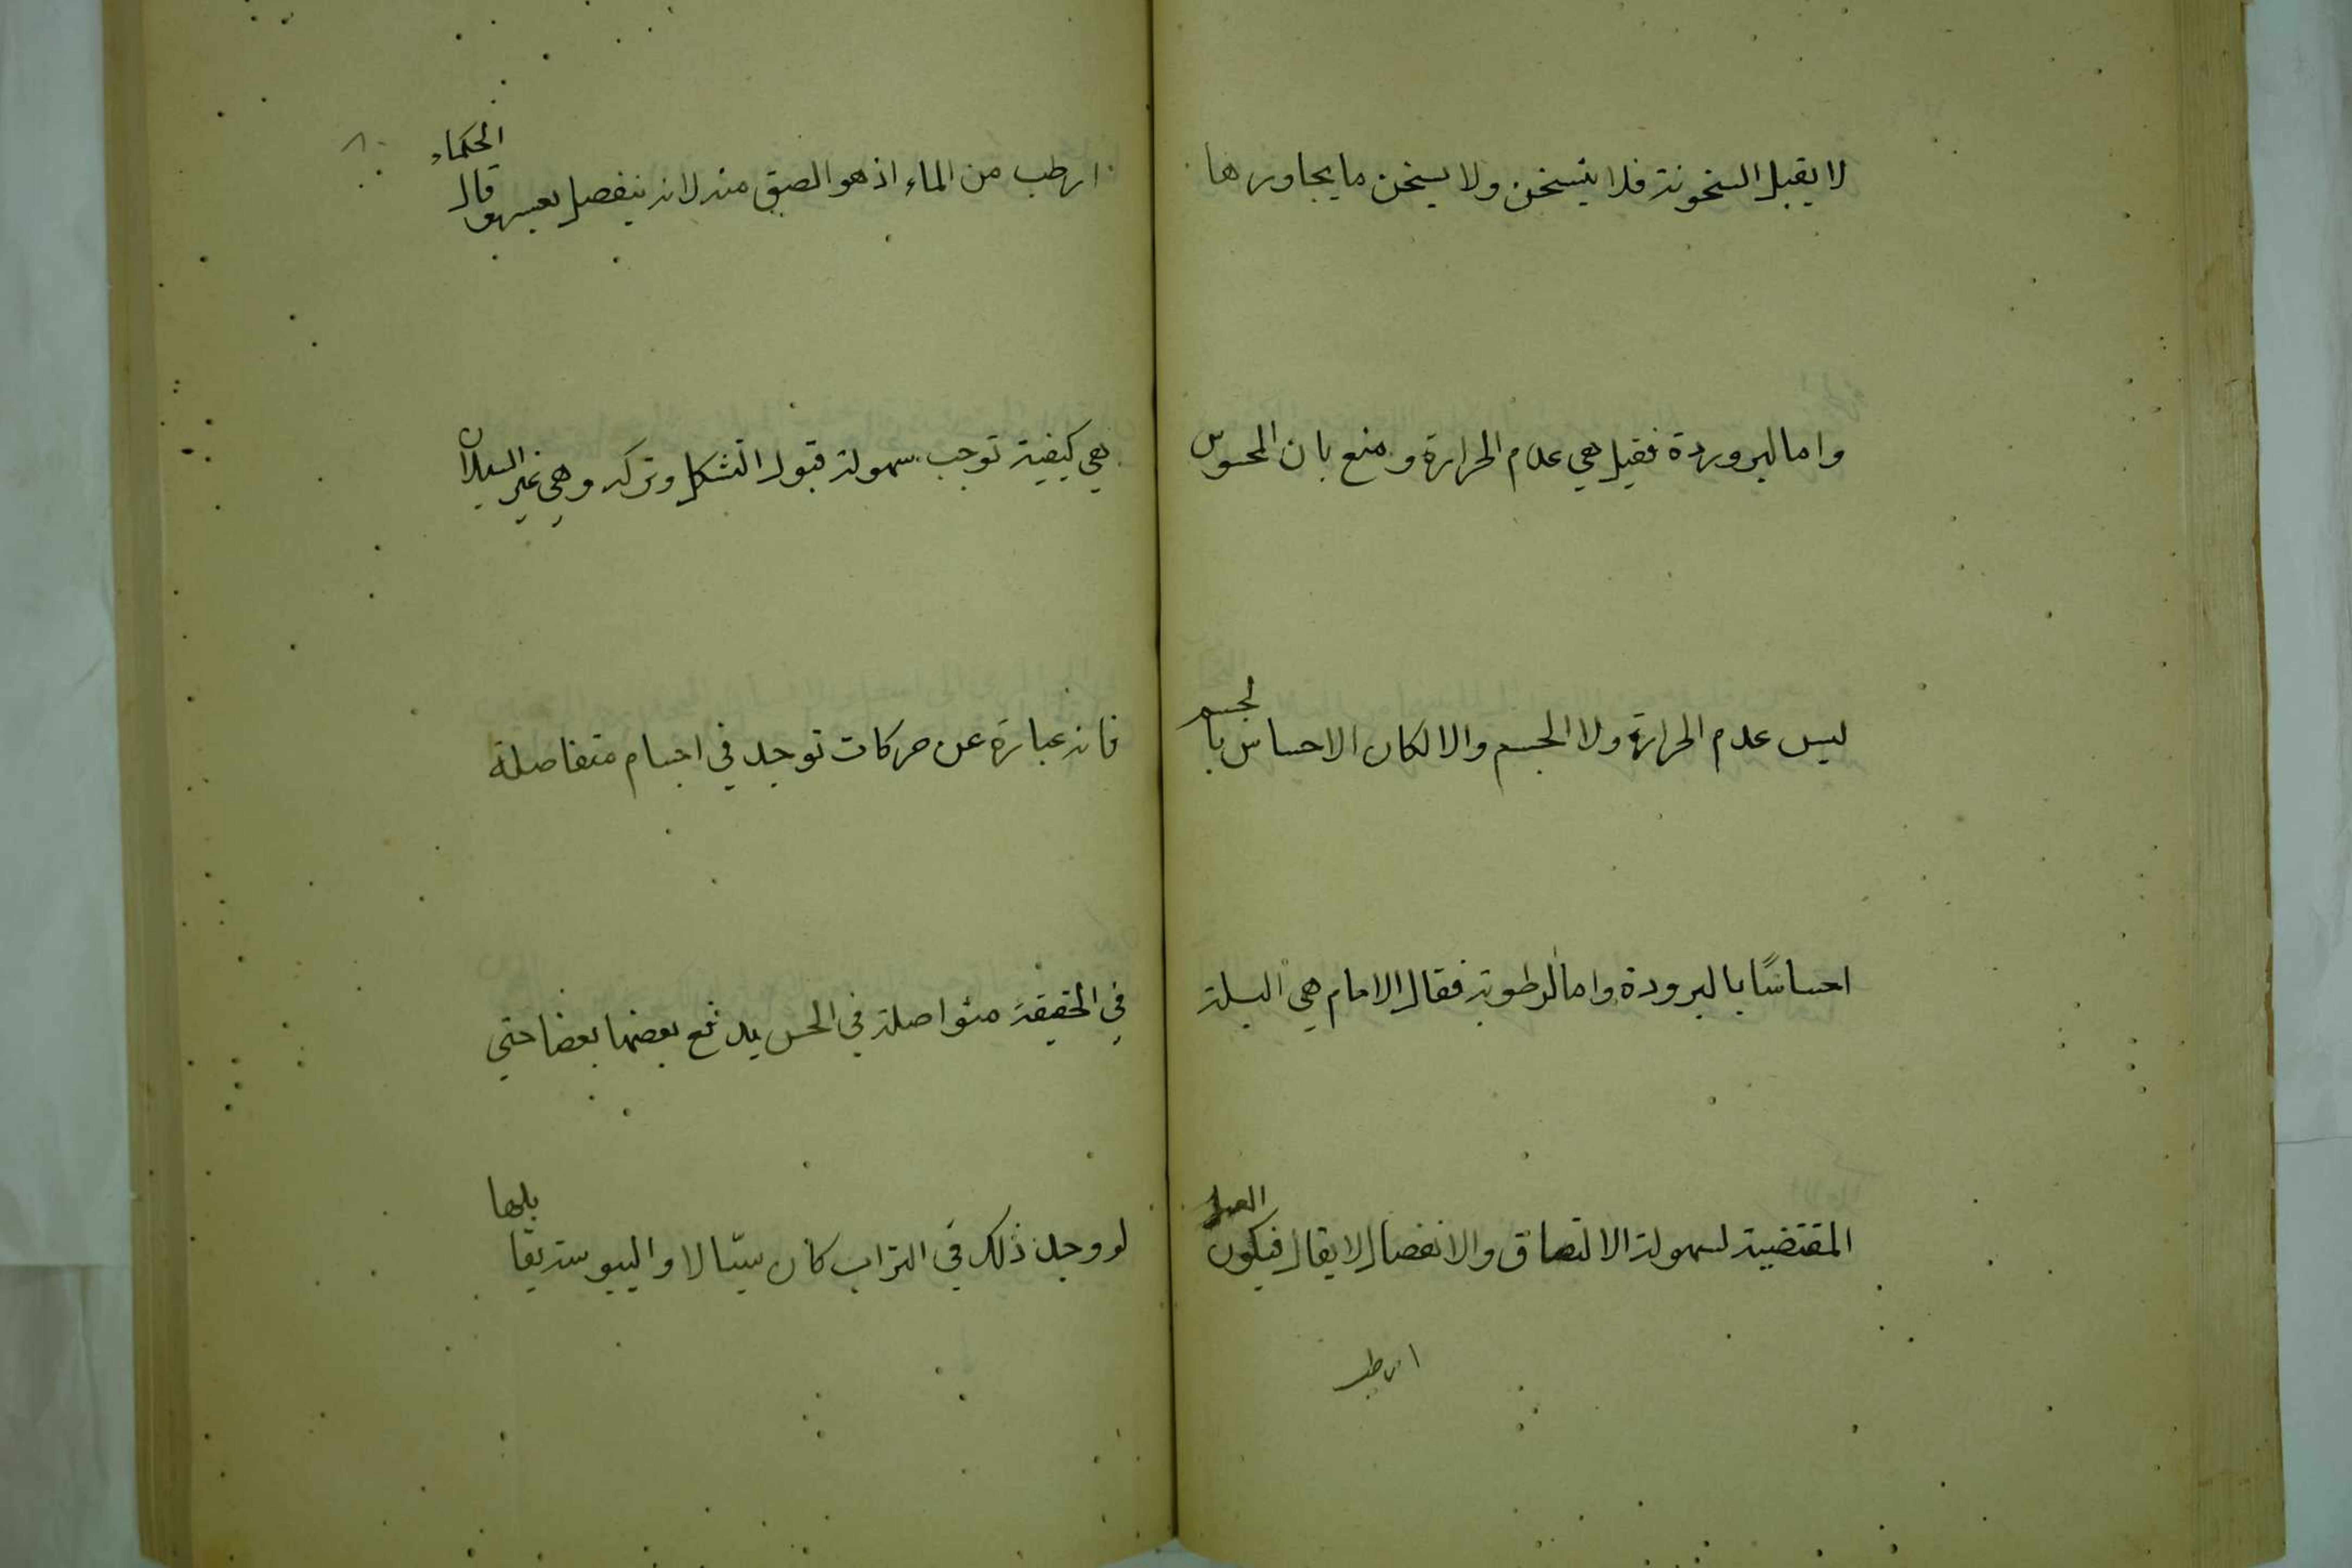 لا يقبل السخونة فلا يتسخن ولا يسخن ما يجاورها
واما البرودة فقيل هي عدم الحرارة ومنع بان المحسوس
ليس عدم الحرارة ولا الجسم والا لكان الاحساس بالجسم
احساسًا بالبرودة واما الرطوبة فقال الامام هي البلة
المقتضية لسهولة الالتصاق والانفصال لا يقال فيكون العسل
ارطب
ارطب من الماء اذ هو الصق منه لانه ينفصل بعسر وقال الحكماء
هي كيفية توجب سهولة قبول التشكل وتركه وهي غير السيلان
فانه عبارة عن حركات توجد في اجسام متفاصلة
في الحقيقة متواصلة في الحس يدفع بعضها بعضا حتى
لو وجد ذلك في التراب كان سيّالا واليبوسة يقابلها